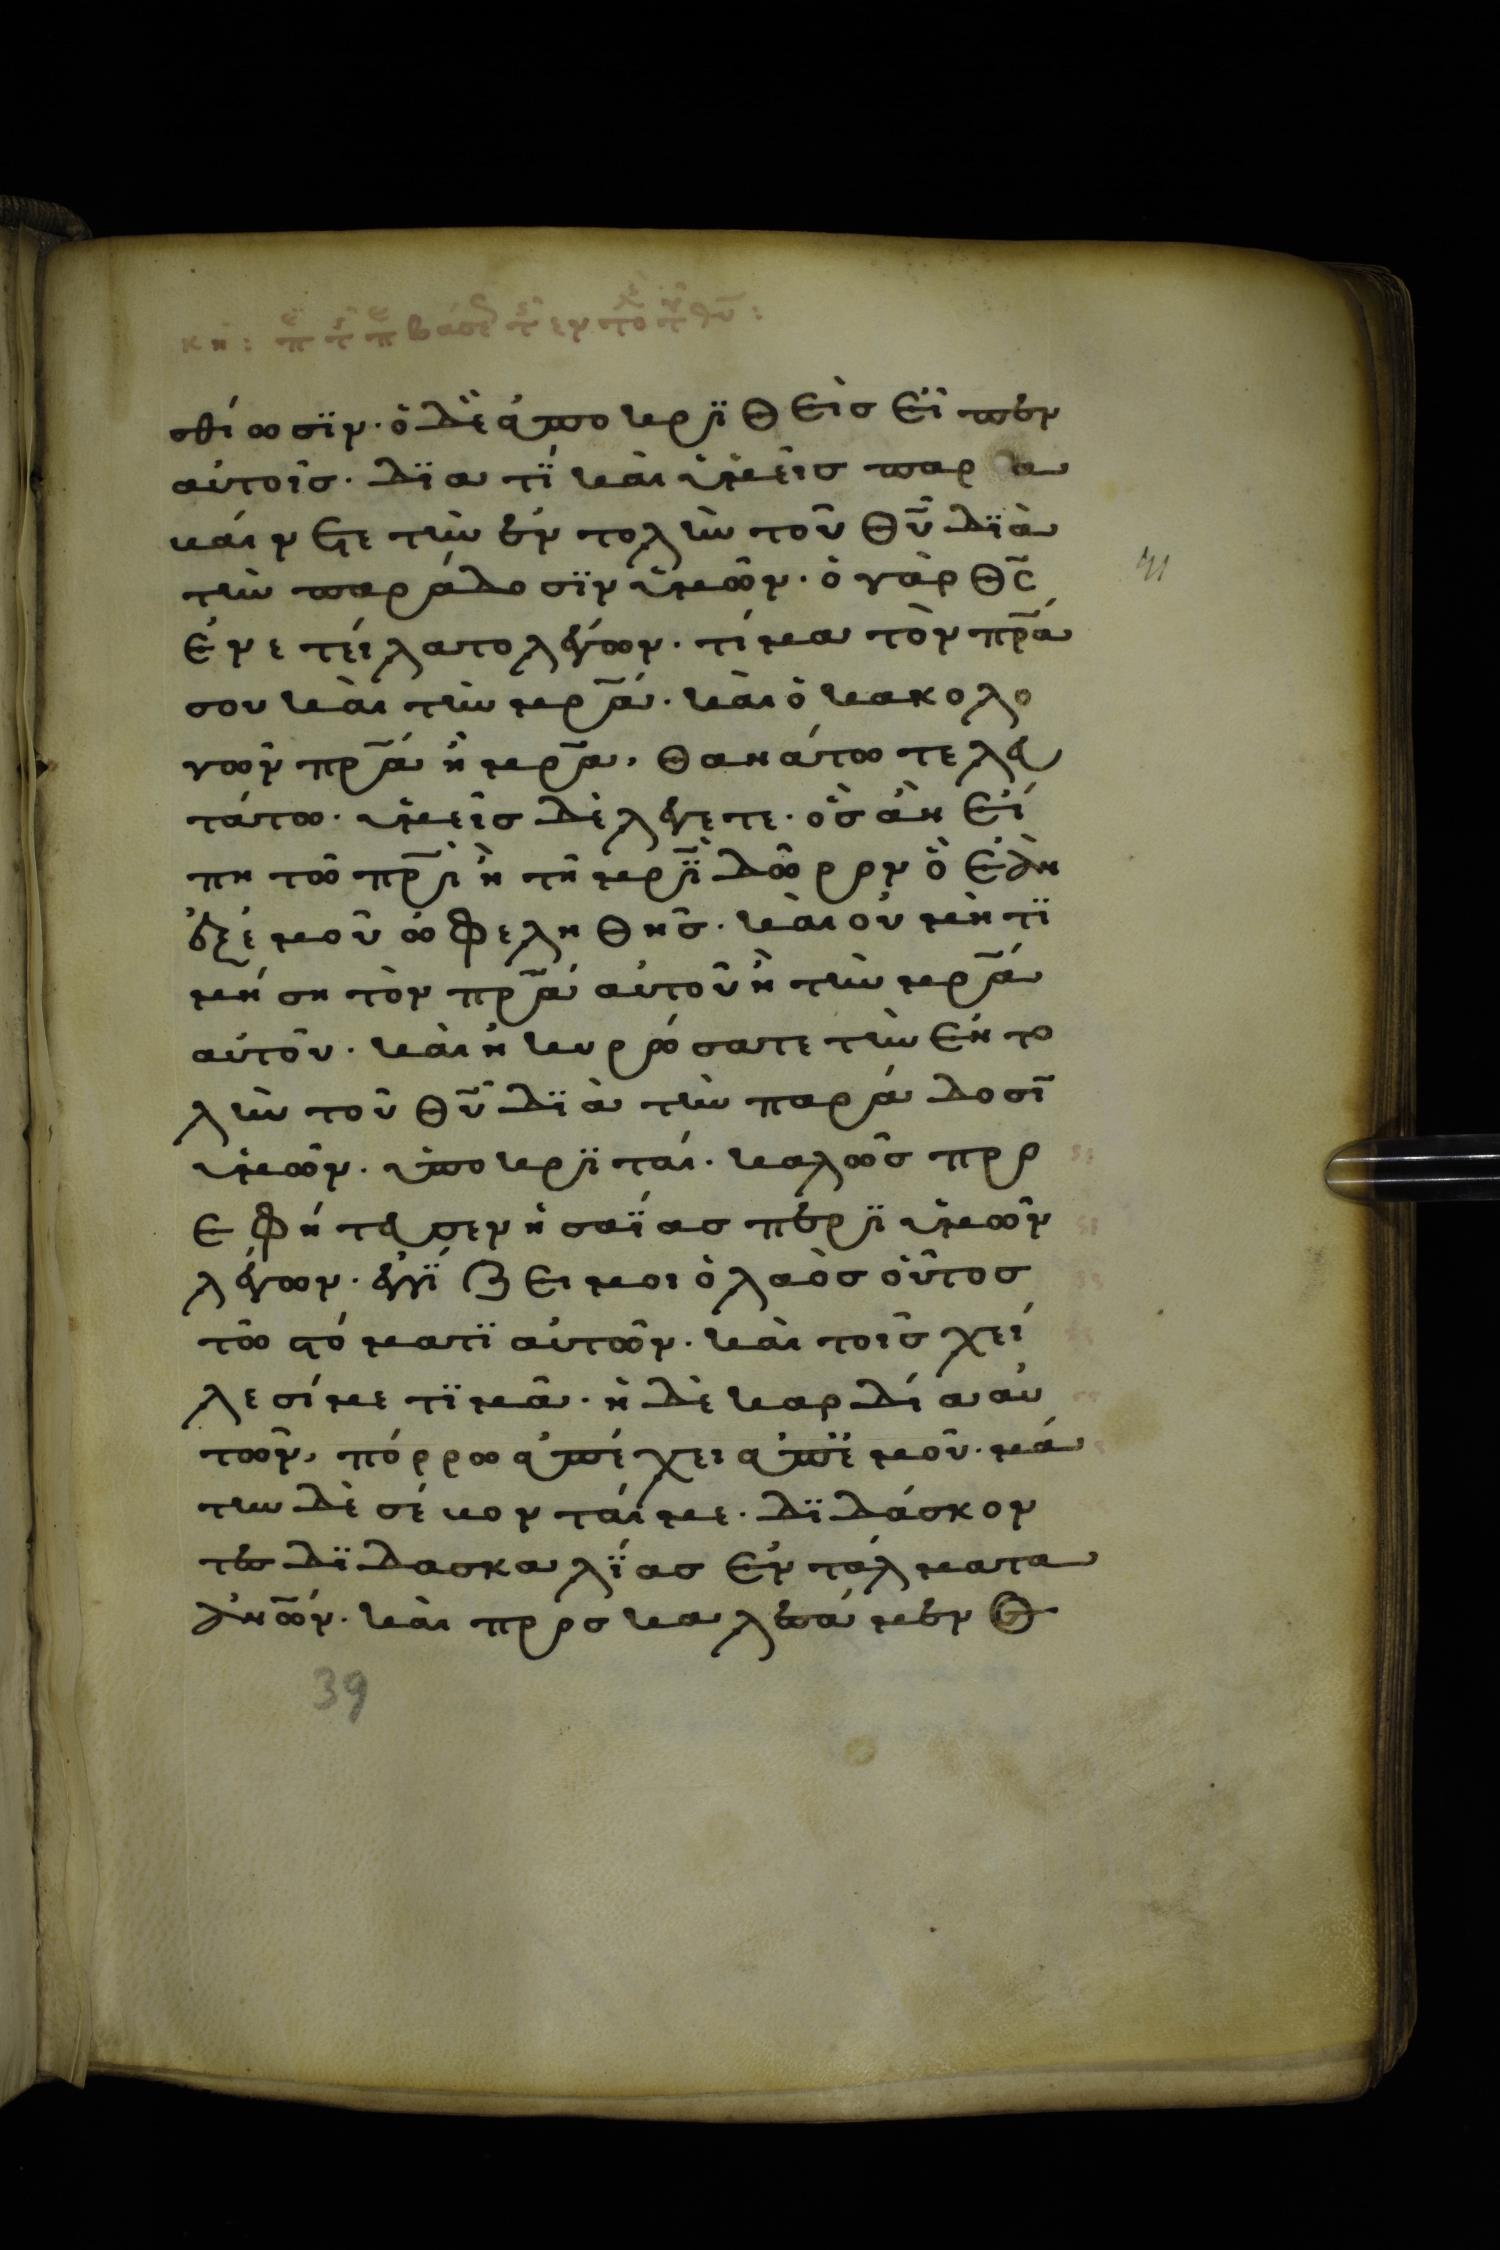 κη: π τ π βάσε τ εντο τ θυ:
σθίωσϊν· ὁ δὲ ἀποκρϊθεὶσ εἶπεν
αὐτοῖσ· δϊατΐ καὶ ὑμεῖσ παρα
βάινετε τὴν ἐντολὴν τοῦ θῦ δϊὰ
τὴν παράδοσϊν ὑμῶν· ὁ γὰρ θσ
ἐνετείλατο λέγων· τίμα τὸν πρα
σου καὶ τὴν μρα· καὶ ὁ κακολο
γῶν πρα ἢ μρα, θανάτω τελευ
τάτω· ὑμεῖσ δὲ λέγετε· ὃσ ἂν εἴ
πη τῶ πρι ἢ τῆ μρϊ δῶρον ὃ ἐὰν
ἐξ ἐμοῦ ὠφεληθῆσ· καὶ οὐ μὴ τϊ
μήση τὸν πρα αὐτοῦ ἢ τὴν μρα
αὐτοῦ· καὶ ἠκυρώσατε τὴν ἐντο
λὴν τοῦ θῦ δϊὰ τὴν παράδοσῖ
ὑμῶν· ὑποκρϊταί· καλῶσ προ
εφήτευσεν ἡσαΐασ περϊ ὑμῶν
λέγων· ἐγγΐζει μοι ὁ λαὸσ οὗτοσ
τῶ στόματϊ αὐτῶν· καὶ τοῖσ χεί
λεσί με τϊμᾶ· ἡ δὲ καρδία αὐ
τῶν, πόρρω ἀπέχει ἀπ ἐμοῦ· μά
την δὲ σέβονταί με· δϊδάσκον
τεσ δϊδασκαλΐασ ἐντάλματα
ἀνῶν· καὶ προσκαλεσάμενοσ
39